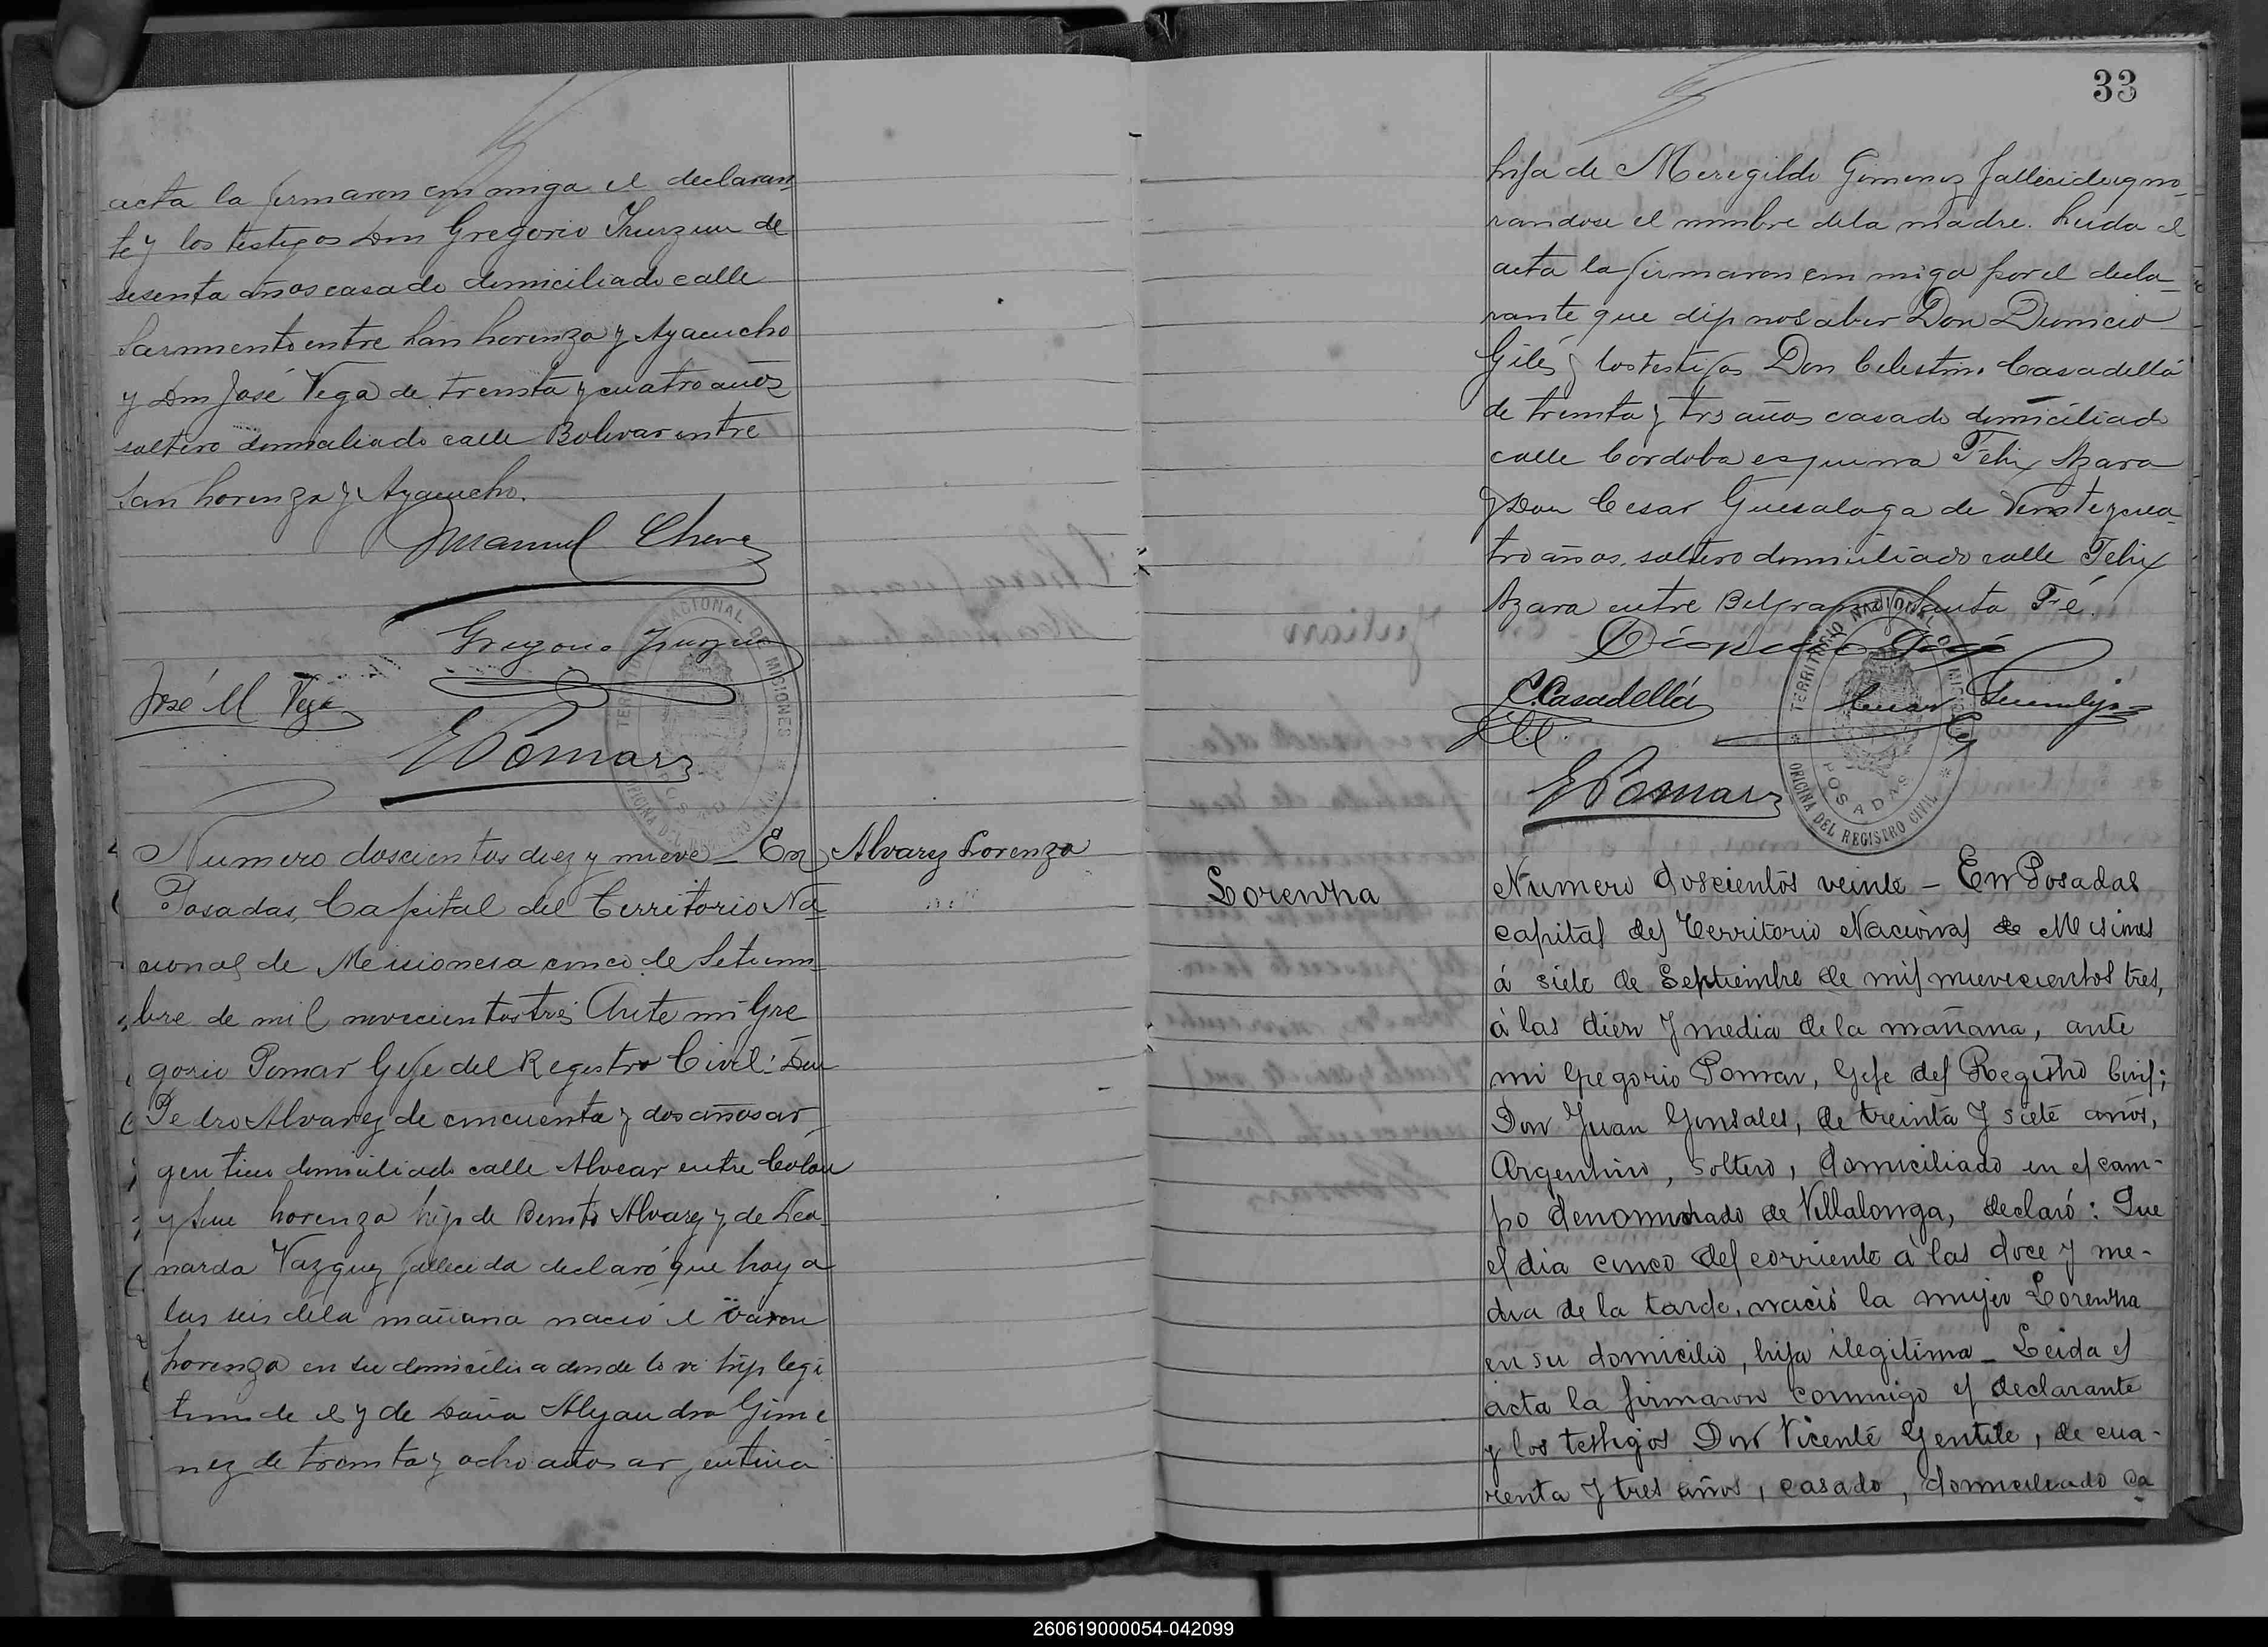 acta la firmaron con migo el declaran
te y los testigos Don Gregorio Irurzun de
sesenta años casado domiciliado calle
Sarmiento entre San Lorenzo y Ayacucho
y Don José Vega de treinta y cuatro años
soltero domiciliado calle Bolivar entre
San Lorenzo y Ayacucho.
Manuel Chave
Gregorio Irurzun
José M Vega
G Pomar
TERRITORIO NACIONAL DE MICIONES
OFICINA DEL REGISTRO CIVIL
POSADAS
Numero doscientos diez y nueve _ En
Alvarez Lorenzo
Posadas, Capital del Territorio Na
cional de Misiones a cinco de Setiem
bre de mil novecientos tres Ante mi Gre
gorio Pomar Gefe del Registro Civil: Don
Pedro Alvarez de cincuenta y dos años ar
gentino domiciliado calle Alvear entre Colon
y Lorenzo hijo de Benito Alvarez y de Leo
narda Vazquez fallecida declaró que hoy a
las seis dela mañana nació el varon
Lorenzo en su domicilio a donde lo vi hijo legi
timo de el y de Doña Alejandra Gime
nez de treinta y ocho años argentina
33
hija de Meregildo Gimenez fallecido igno
randose el nombre dela madre. Leida el
acta la firmaron con migo por el decla
rante que dijo no saber Don Dionicio
Giles y los testigos Don Celestino Casadellá
de treinta y tres años casado domiciliado
calle Cordoba esquina Felix Azara
y Don Cesar Guesalaga de Veinte y cua
tro años, soltero domiciliado calle Felix
Azara entre Belgrano y Santa Fé.
C. Casadellá
Cesar
G Pomar
TERRITORIO NACIONAL MICIONES
OFICINA DEL REGISTRO CIVIL
POSADAS
Lorenza
Numero doscientos veinte - En Posadas
capital del Territorio Nacional de Misiones
á siete de Septiembre de mil nuevecientos tres,
á las diez y media de la mañana, ante
mi Gregorio Pomar, Gefe del Registro Civil;
Don Juan Gonsales, de treinta y siete años,
Argentino, soltero, domiciliado en el cam-
po denominado de Villalonga, declaró: Que
el dia cinco del corriente á las doce y me-
dia de la tarde, nació la mujer Lorenza
en su domicilio, hija ilegitima _ Leida el
acta la firmaron conmigo el declarante
y los testigos Don Vicente Gentile, de cua-
renta y tres años, casado, domiciliado ca
260619000054-042099